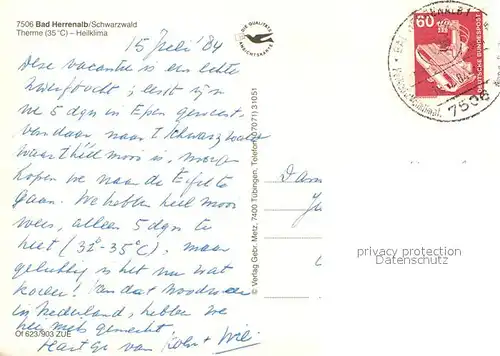 7506 Bad Herrenalb/Schwarzwald
Therme (35°C) – Heilklima
15 Juli '84
Deze vacantie is een echte
; eerst zijn
we 5 dgn in Epen geweest,
vandaar naar 't Schwarzwald
waar 't héél mooi is, morgen
hopen we naar de Eifel te
gaan. We hebben heel mooi
weer, alleen 5 dgn te
heet (32°-35°C), maar
gelukkig is het nu wat
koeler! Van dat noodweer
in Nederland, hebben we
hier niets gemerkt.
Hart. gr. van +
Of 623/903 ZUE
DIE QUALITÄTS
ANSICHTSKARTE
© Verlag Gebr. Metz, 7400 Tübingen, Telefon (07071) 31051
60
DEUTSCHE BUNDESPOST
7506
privacy protection
watermark